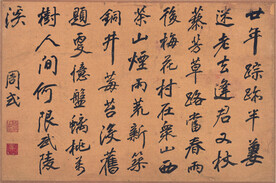 廿年踪跡半萋
迷老去逢君又杖
藜芳草路當春雨
後梅花村在栗山西
茶山煙雨荒新築
銅井莓苔沒舊
題更憶盤螭桃萬
樹人間何限武陵
溪
周